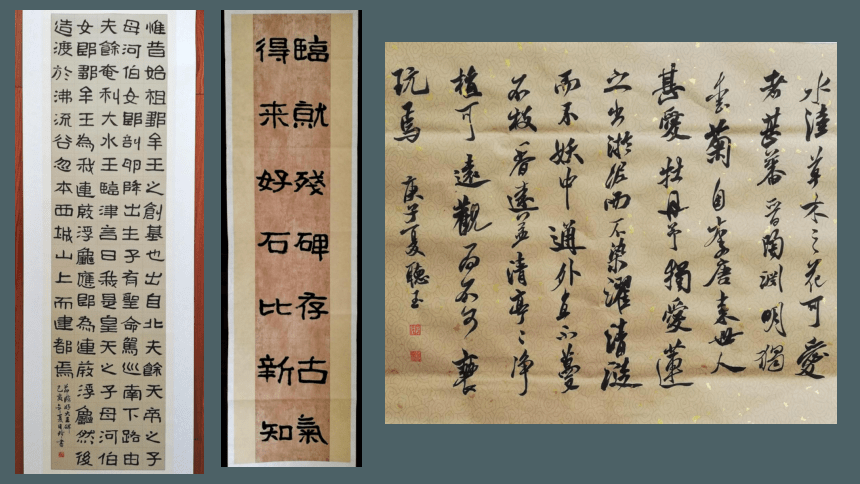 惟昔始祖鄒牟王之創基也出自北夫餘天帝之子
母河伯女郎剖卵降出生子有聖命駕巡南下路由
夫餘奄利大水王臨津言曰我是皇天之子母河伯
女郎鄒牟王為我連葭浮龜應即為連葭浮龜然後
造渡於沸流谷忽本西城山上而建都焉
臨就殘碑存古氣
得来好石比新知
水陸草木之花可愛
者甚蕃晉陶淵明獨
愛菊自李唐來世人
甚愛牡丹予獨愛蓮
之出淤泥而不染濯清漣
而不妖中通外直不蔓
不枝香遠益清亭〻淨
植可遠觀而不可褻
玩焉 庚子夏聰玉